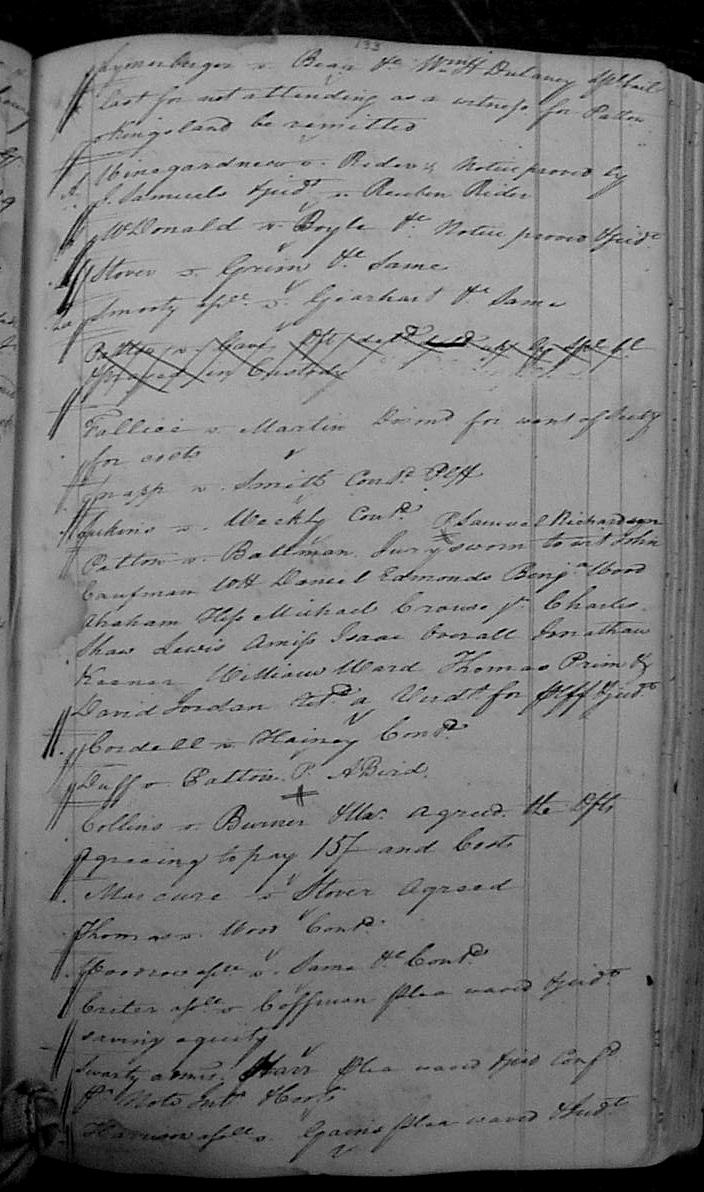 133
Lynerberger v. Bear &c Wm H Dulaney Spl bail
last for not attending as a witness for Patton
Kingsland be remitted
Winegardner v. Rider Notice proved by
J. Samuels & Judt v Reuben Rider
McDonald v. Boyle &c Notice proved & Judt
Stover v. Grim &c Same
Smooty assee v. Gearhart &c Same
v. Dft Spl bl
in Custody
Fallice v. Martin Dismd for want of Secty
for costs
Knapp v. Smith Contd Plff
Jenkins v. Weekly Contd P Samuel Richardson
Patton v. Bateman Jury sworn to wit John
Caufman WH Daniel Edmonds Benja Wood
Abraham Hess Michael Crouse Jr Charles
Shaw Lewis Amiss Isaac Overall Jonathan
Keener William Ward Thomas Prim &
David Jordan retd a Verdt for Plff & Judt
Cordell v. Hainey Contd
Duff v Patton P. A Bird
Collins v. Burner & Ux. Agreed the Dfts
agreeing to pay 15/ and Costs
Marcure v Stover Agreed
Thomas v. Wood Contd
Woodrow assee v. Same &c Contd
Criter assee v Coffman Plea waved & Judt
saving equity
Swarty admr. Starr Plea waved & Jud Confd
Pr Note Int & Costs
Harrison assee v. Gains Plea waved & Judt